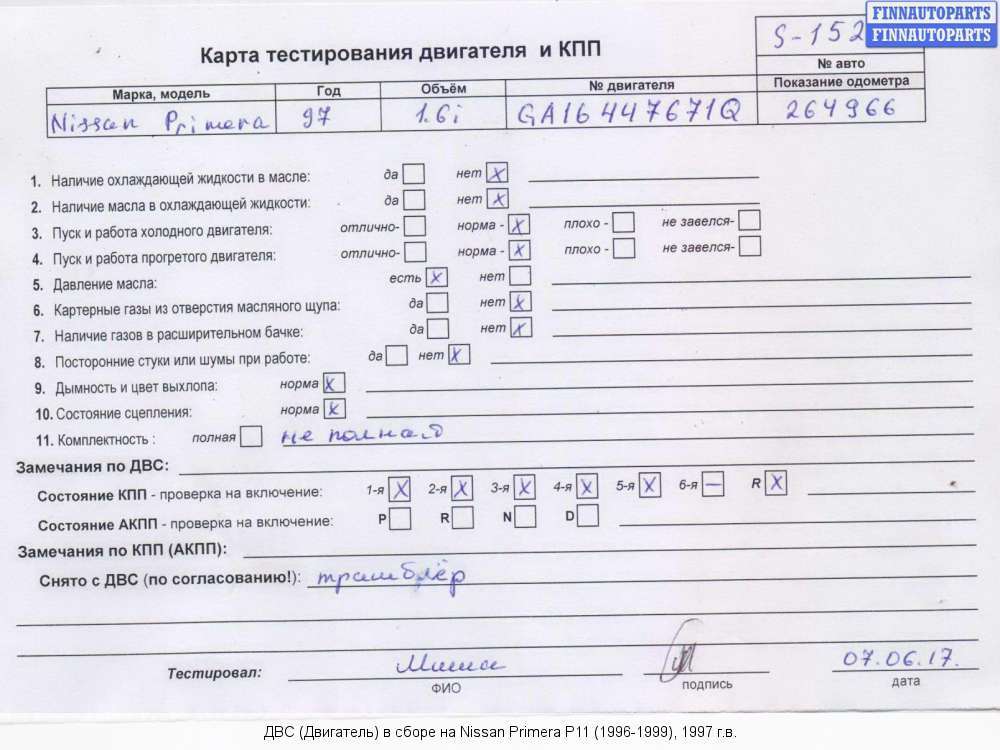 FINNAUTOPARTS
FINNAUTOPARTS
Карта тестирования двигателя и КПП
S-152
№ авто
Марка, модель Год Объём № двигателя Показание одометра
Nissan Primera 97 1.6i GA16 447671Q 264966
1. Наличие охлаждающей жидкости в масле: да нет X
2. Наличие масла в охлаждающей жидкости: да нет X
3. Пуск и работа холодного двигателя: отлично- норма - X плохо - не завелся-
4. Пуск и работа прогретого двигателя: отлично- норма - X плохо - не завелся-
5. Давление масла: есть X нет
6. Картерные газы из отверстия масляного щупа: да нет X
7. Наличие газов в расширительном бачке: да нет X
8. Посторонние стуки или шумы при работе: да нет X
9. Дымность и цвет выхлопа: норма X
10. Состояние сцепления: норма X
11. Комплектность : полная не полная
Замечания по ДВС:
Состояние КПП - проверка на включение: 1-я X 2-я X 3-я X 4-я X 5-я X 6-я — R X
Состояние АКПП - проверка на включение: P R N D
Замечания по КПП (АКПП):
Снято с ДВС (по согласованию!): трамблёр
Тестировал: Миша 07.06.17.
ФИО подпись дата
ДВС (Двигатель) в сборе на Nissan Primera P11 (1996-1999), 1997 г.в.